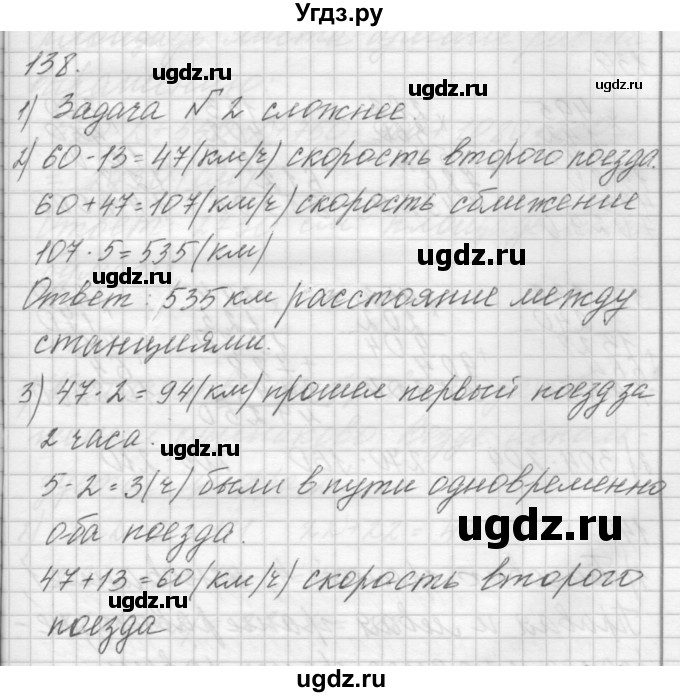 Угдз.ру
138.
ugdz.ru
ugdz.ru
1) Задача №2 сложнее.
2) 60-13=47(км/ч) скорость второго поезда.
60+47=107(км/ч) скорость сближение
ugdz.ru
107·5=535(км)
ugdz.ru
Ответ: 535 км расстояние между
станциями.
3) 47·2=94(км) прошел первый поезд за
2 часа.
ugdz.ru
5-2=3(ч) были в пути одновременно
оба поезда.
ugdz.ru
47+13=60(км/ч) скорость второго
ugdz.ru
поезда
ugdz.ru
ugdz.ru